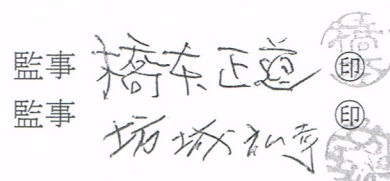 監事 橋本正道 ㊞
監事 坊城 ㊞